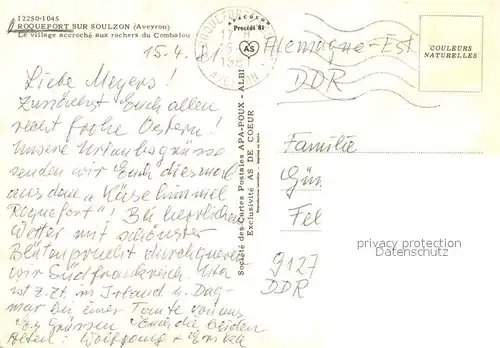 12250-1045
ROQUEFORT SUR SOULZON (Aveyron)
Le village accroché aux rochers du Combalou
15.4.81
Liebe Meyers!
Zunächst Euch allen
recht frohe Ostern!
Unsere Urlaubsgrüsse
senden wir Euch diesmal
aus dem "Käsehimmel
Roquefort"! Bei herrlichem
Wetter mit schönster
Blütenpracht durchqueren
wir Südfrankreich.
ist z.Zt. in Irland u. Dag-
mar bei einer Tante von uns
Es grüssen Euch die beiden
Alten: Wolfgang + Erika
APACOLOR
Procédé 61
AS
ROQUEFORT
AVEYRON
Société des Cartes Postales APA-POUX - ALBI
Exclusivité AS DE COEUR
COULEURS
NATURELLES
Allemagne-Est
DDR
Familie
Gün
Fel
privacy protection
Datenschutz
9127
DDR